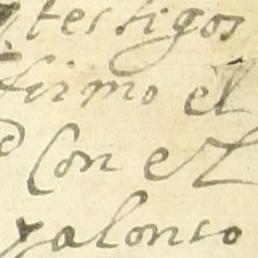 testigos
firmo el
Con el
y alonso